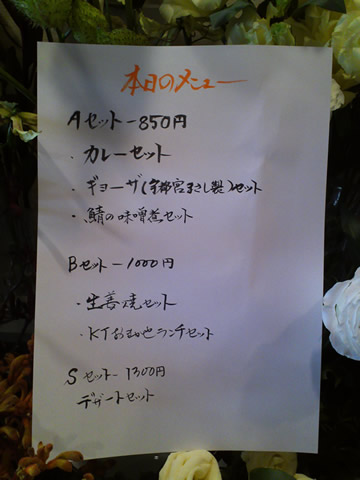 本日のメニュー
Aセット-850円
・カレーセット
・ギョーザ(宇都宮まさし製)セット
・鯖の味噌煮セット
Bセット-1000円
・生姜焼セット
・KTおまかせランチセット
Sセット-1300円
デザートセット